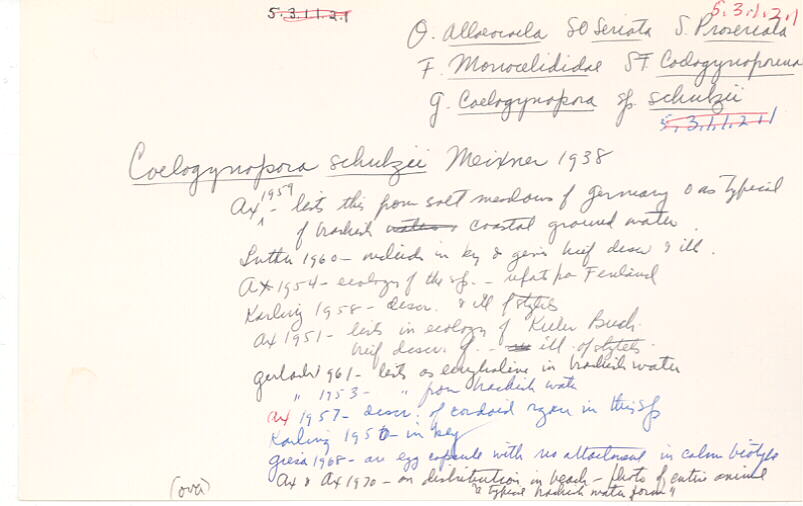 5.3.1.1.2.1
5.3.1.2.1
O. Alloeocoela SO Seriata S. Proseriata
F. Monocelididae SF. Coelogynoporina
g. Coelogynopora sp schulzii
5.3.1.1.2.1
Coelogynopora schulzii Meixner 1938
Ax 1959 - lists this from salt meadows of Germany & as typical
of brackish water coastal ground water
Luther 1960 - includes in key & gives brief descr & ill.
Ax 1954 - ecology of the sp. - repats for Finland
Karling 1958 - descr. & ill of stylets
Ax 1951 - lists in ecology of Kieler Buch.
brief descr of - ill. of stylets
Gerlach 1961 - lists as euryhaline in brackish water
" 1953 - " from brackish water
Ax 1957 - descr. of cordoid organ in this sp
Karling 1950 - in key
Giesa 1968 - an egg capsule with no attachment in calm biotope
Ax & Ax 1970 - on distribution in beach - photo of entire animal
"a typical brackish water form"
(ova)